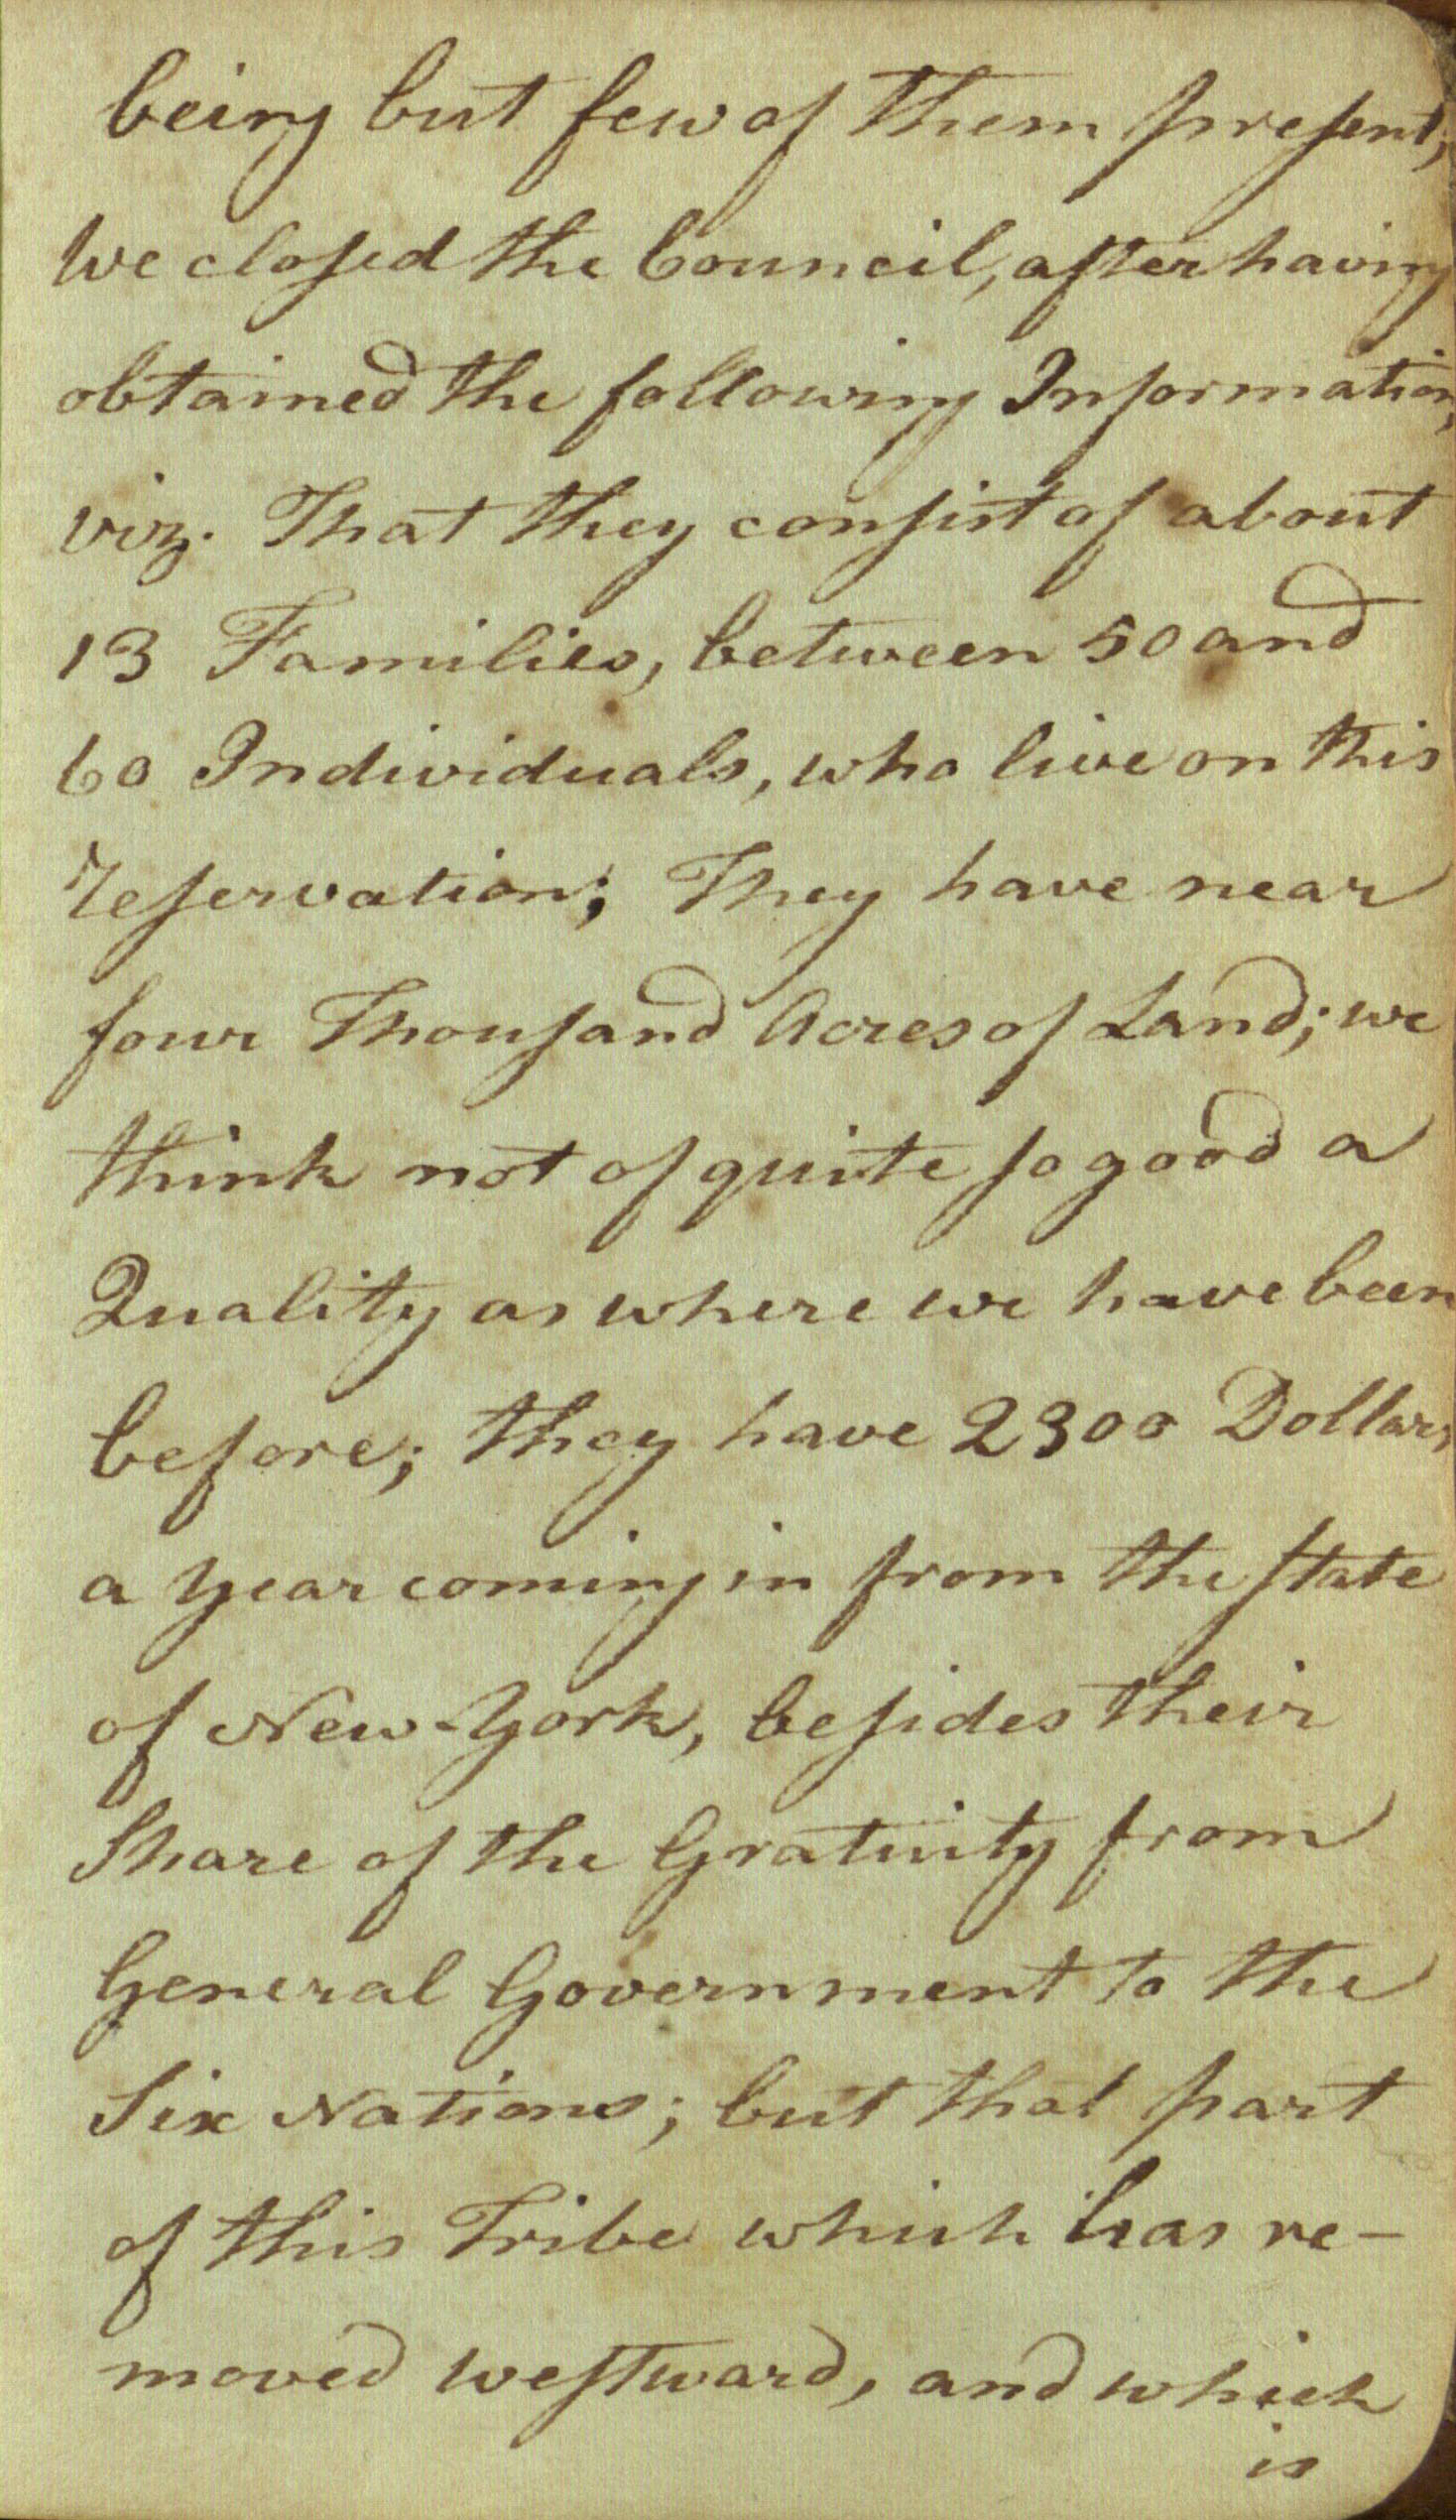 being but few of them preſent,
we cloſed the Council, after having
obtained the following Information,
viz. That they conſist of about
13 Families, between 50 and
60 Individuals, who live on this
reſervation; They have near
four Thouſand Acres of Land; we
think not of quite ſo good a
Quality as where we have been
before; they have 2300 Dollars,
a Year coming in from the ſtate
of New-York, beſides their
Share of the Gratuity from
General Government to the
Six Nations; but that part
of this Tribe which has re-
moved weſtward, and which
is